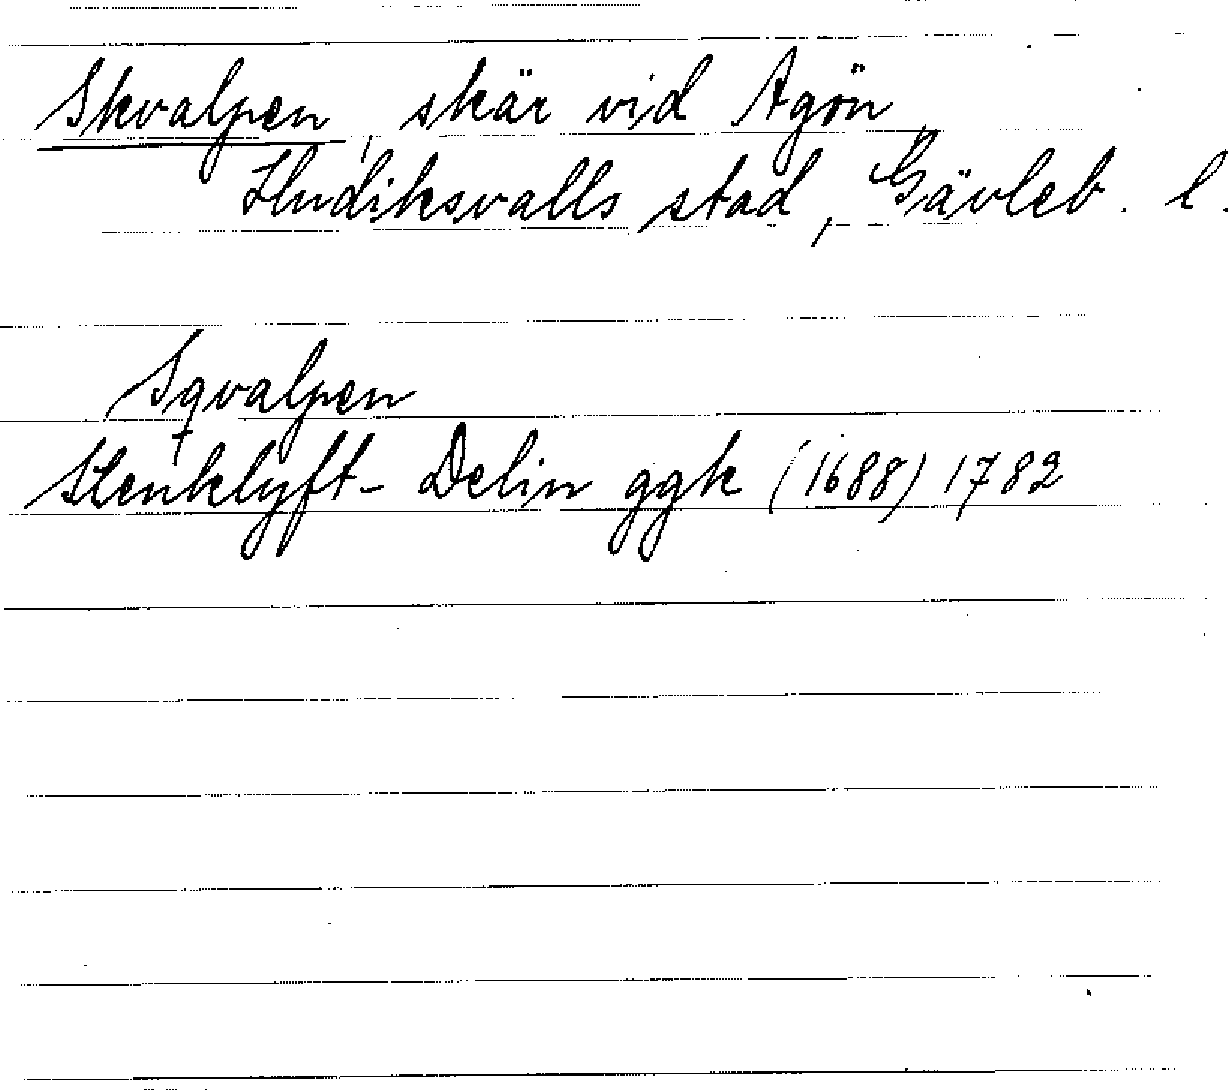 Skvalpen, skär vid Agön,
Hudiksvalls stad, Gävleb. l.
Sqvalpen
Stenklyft-Delin ggk (1688) 1782